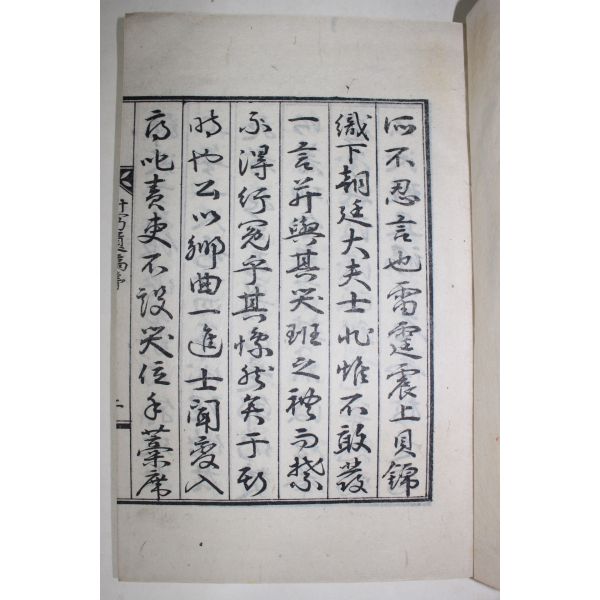 所不忍言也雷霆震上貝錦
織下朝廷大夫士非惟不敢發
一言并與其哭班之禮而禁
不得行冤乎其慘然矣于斯
時也公以鄉曲一進士聞變入
府叱責吏不設哭位手藁席